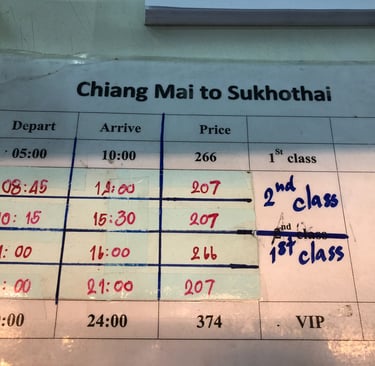 Chiang Mai to Sukhothai
Depart Arrive Price
05:00 10:00 266 1st class
08:45 14:00 207 2nd class
15:30 207
:00 16:00 266 1st class
:00 21:00 207
:00 24:00 374 VIP